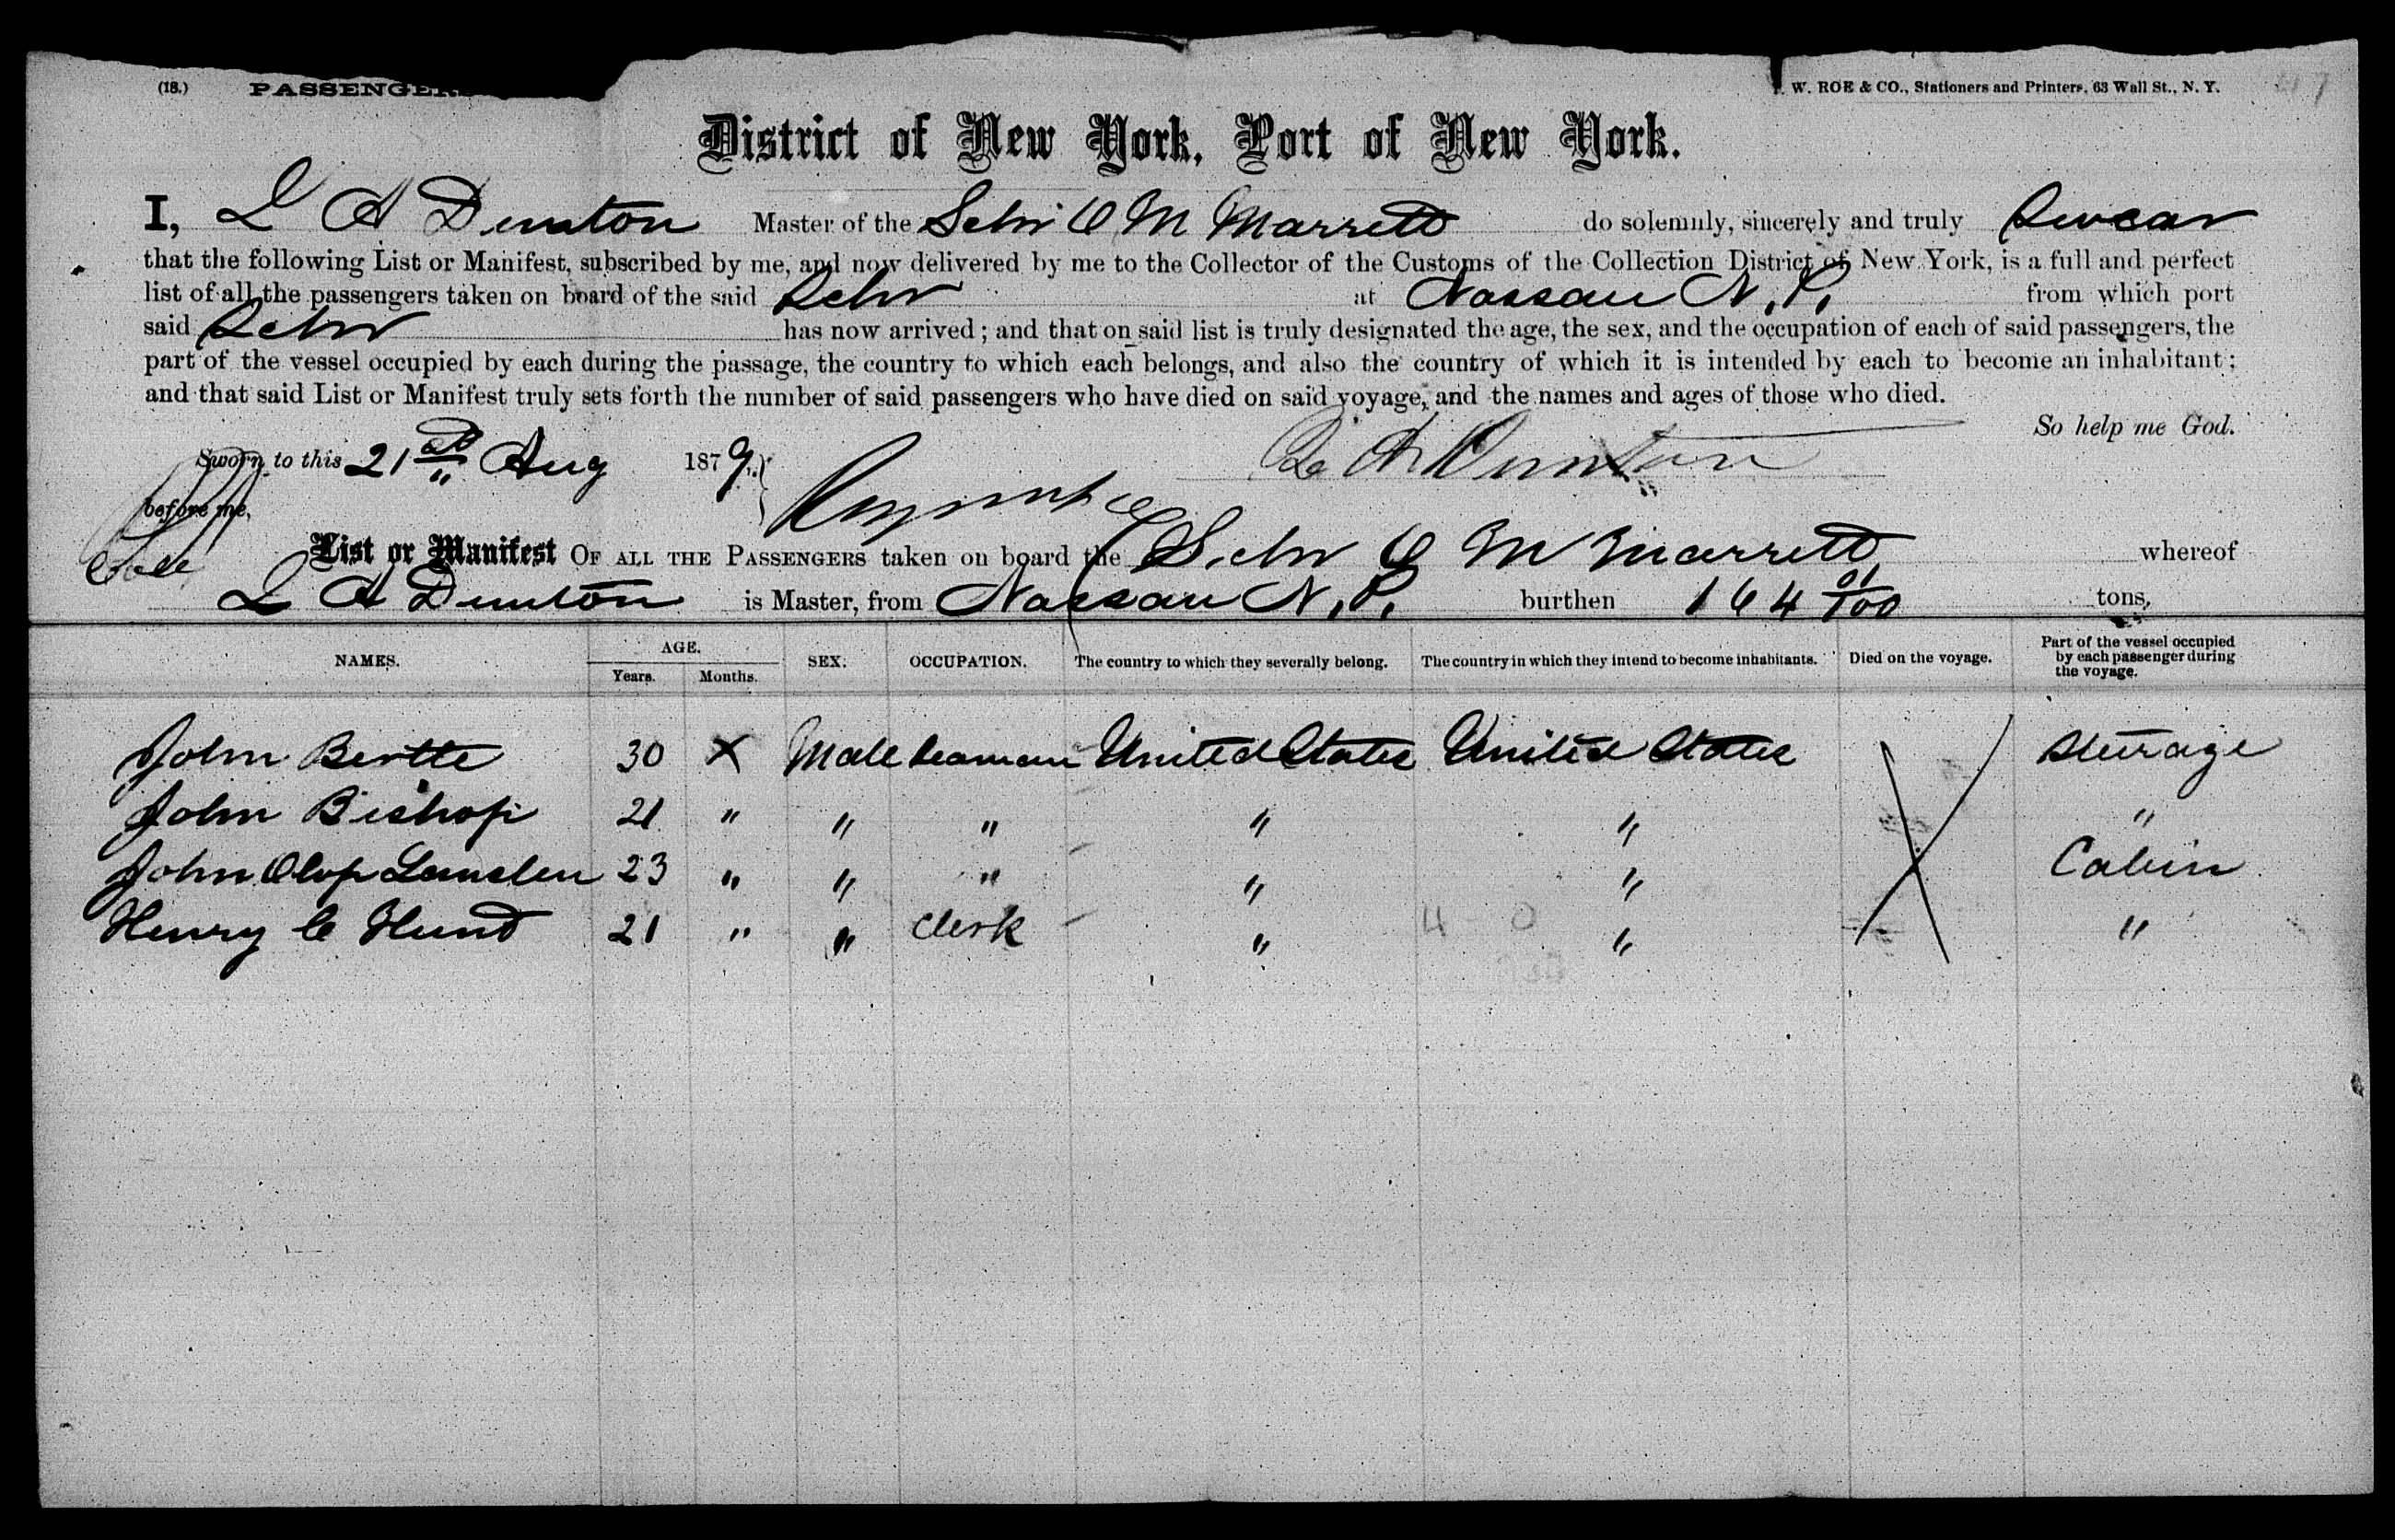 (18.) PASSENGERS W. ROE & CO., Stationers and Printers, 63 Wall St., N. Y.
District of New York, Port of New York.
I, L A Dunton Master of the Schr O M Marrett do solemnly, sincerely and truly Swear
that the following List or Manifest, subscribed by me, and now delivered by me to the Collector of the Customs of the Collection District of New York, is a full and perfect
list of all the passengers taken on board of the said Schr at Nassau N.P. from which port
said Schr has now arrived; and that on said list is truly designated the age, the sex, and the occupation of each of said passengers, the
part of the vessel occupied by each during the passage, the country to which each belongs, and also the country of which it is intended by each to become an inhabitant;
and that said List or Manifest truly sets forth the number of said passengers who have died on said voyage, and the names and ages of those who died.
So help me God.
Sworn to this 21st Aug 1879 L A Dunton
before me,
List or Manifest OF ALL THE PASSENGERS taken on board the Schr O M Marrett whereof
L A Dunton is Master, from Nassau N.P. burthen 164 01/100 tons,
NAMES. AGE. Years. Months. SEX. OCCUPATION. The country to which they severally belong. The country in which they intend to become inhabitants. Died on the voyage. Part of the vessel occupied by each passenger during the voyage.
John Bertte 30 X Male Seaman United States United States Sterage
John Bishop 21 " " " " " "
John Olop 23 " " " " " Cabin
Henry C Hund 21 " " Clerk " " "